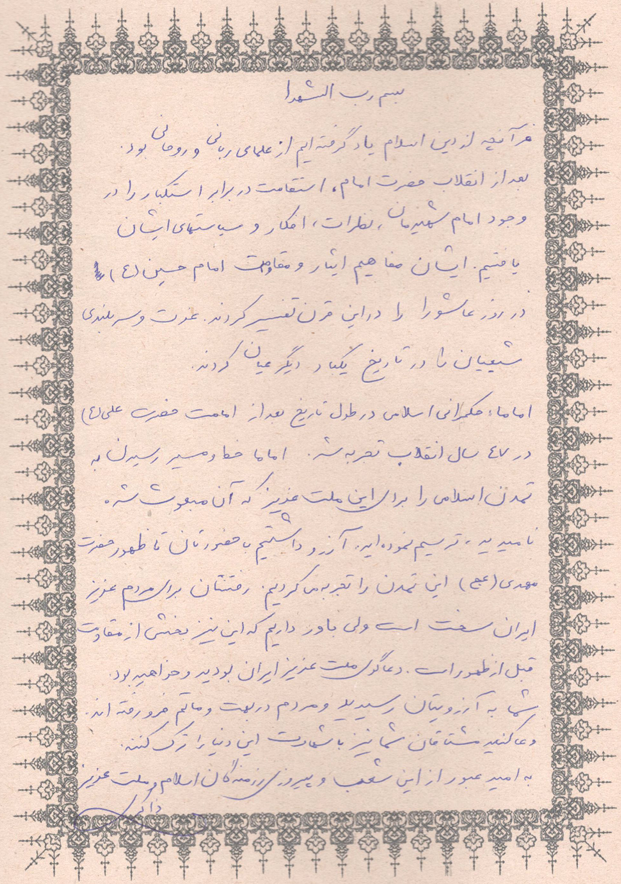 بسم رب الشهدا
هر آنچه از دین اسلام یاد گرفته ایم از علمای ربانی و روحانی بود.
بعد از انقلاب حضرت امام، استقامت در برابر استکبار را در
وجود امام شهیدمان، نظرات، افکار و سیاستهای ایشان
یافتیم. ایشان مفاهیم ایثار و مقاومت امام حسین (ع)
در روز عاشورا را در این قرن تفسیر کردند. عزت و سربلندی
شیعیان را در تاریخ یکبار دیگر عیان کردند.
اماما، حکمرانی اسلامی در طول تاریخ بعد از امامت حضرت علی (ع)
در ٤٧ سال انقلاب تجربه شد. اماما خط و مسیر رسیدن به
تمدن اسلامی را برای این ملت عزیز که آن مبعوث شده
نامیدید، ترسیم نموده اید. آرزو داشتیم با حضورتان تا ظهور حضرت
مهدی (عج) این تمدن را تجربه می کردیم. رفتنتان برای مردم عزیز
ایران سخت است ولی باور داریم که این نیز بخشی از مقاومت
قبل از ظهور است. دعاگوی ملت عزیز ایران بودید و خواهید بود.
شما به آرزویتان رسیدید و مردم در بهت و ماتم فرو رفته اند.
دعا کنید مشتاقان شما نیز با شهادت این دنیا را ترک کنند.
به امید عبور از این شعب و پیروزی رزمندگان اسلام و ملت عزیز